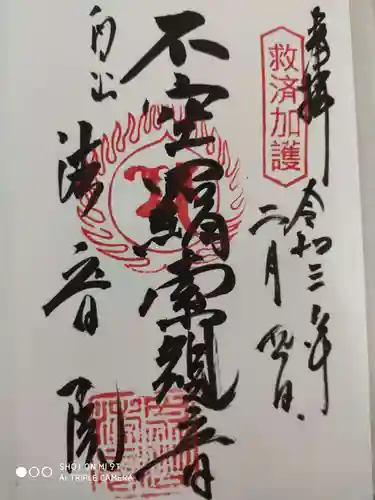 奉拝
救済加護
令和三年
二月四日
不空羂索観音
内山
波音閣
SHOT ON MI 9T
AI TRIPLE CAMERA